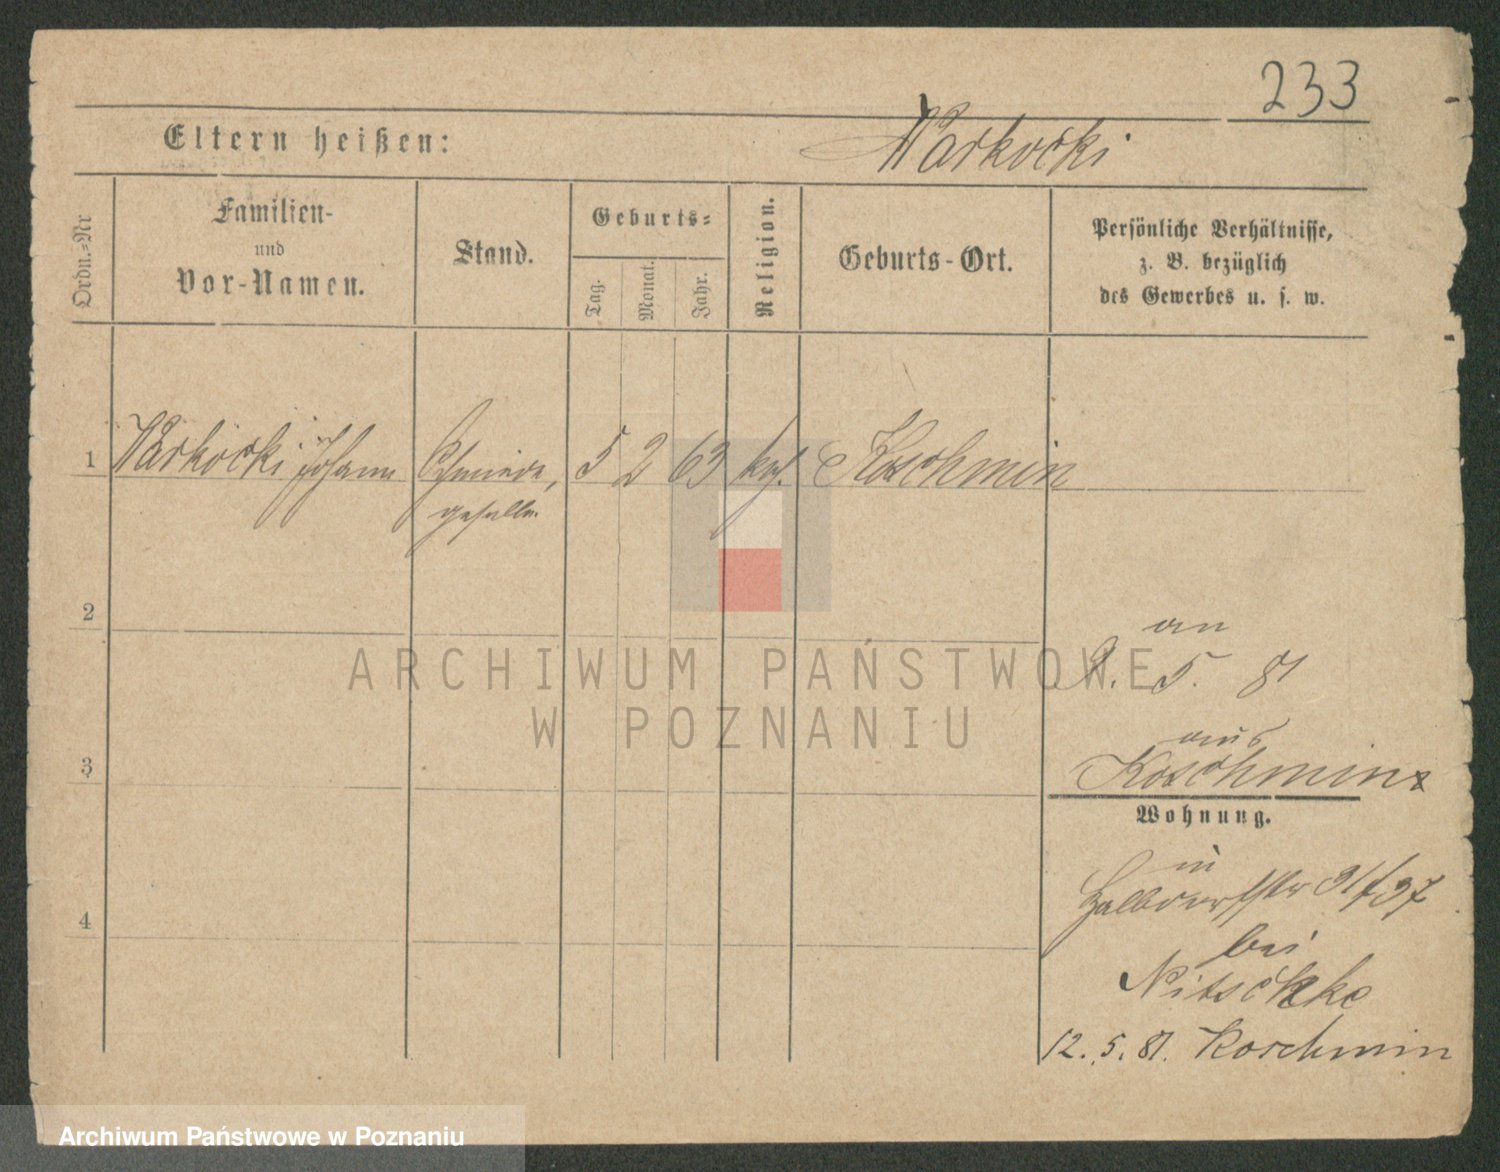 233
Eltern heißen:
Warkocki
Ordn.=Nr
Familien-
und
Vor-Namen.
Stand.
Geburts=
Tag.
Monat.
Jahr.
Religion.
Geburts-Ort.
Persönliche Verhältnisse,
z. B. bezüglich
des Gewerbes u. s. w.
1 Warkocki Johann Schmiede, 5 2 63 kath. Koschmin
geselle
2
an
9. 5. 81
ARCHIWUM PAŃSTWOWE
W POZNANIU
aus
3 Koschmin
Wohnung.
in
Halbdorfstr 31/37
4
bei
Nitschke
12. 5. 81. Koschmin
Archiwum Państwowe w Poznaniu